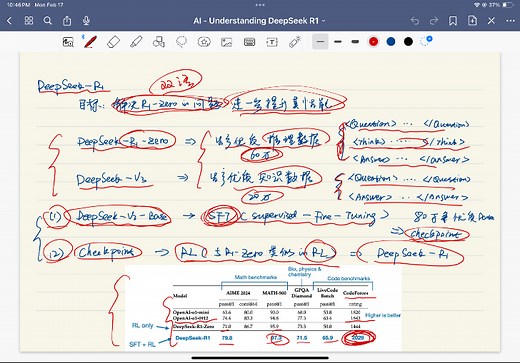 10:46 PM Mon Feb 17
37%
AI - Understanding DeepSeek R1
DeepSeek-R1
目标: 解决R1-zero的问题 进一步提升性能
DeepSeek-R1-zero ⇒ 推理数据
60万
<Question> ... </Question>
<Think> ... </Think>
<Answer> ... </Answer>
DeepSeek-V3 ⇒ 知识数据
20万
<Question> ... </Question>
<Answer> ... </Answer>
(1) DeepSeek-V3-Base → SFT (supervised-Fine-Tuning) 80万
⇒ checkpoint
(2) Checkpoint → RL (与R1-Zero类似的RL) ⇒ DeepSeek-R1
Math benchmarks
Bio, physics & chemistry
Code benchmarks
Model AIME 2024 MATH-500 GPQA Diamond LiveCode Bench CodeForces
pass@1 cons@64 pass@1 pass@1 pass@1 rating
OpenAI-o1-mini 63.6 80.0 90.0 60.0 53.8 1820
OpenAI-o1-0912 74.4 83.3 94.8 77.3 63.4 1843
Higher is better
RL only
DeepSeek-R1-Zero 71.0 86.7 95.9 73.3 50.0 1444
SFT + RL
DeepSeek-R1 79.8 97.3 71.5 65.9 2029